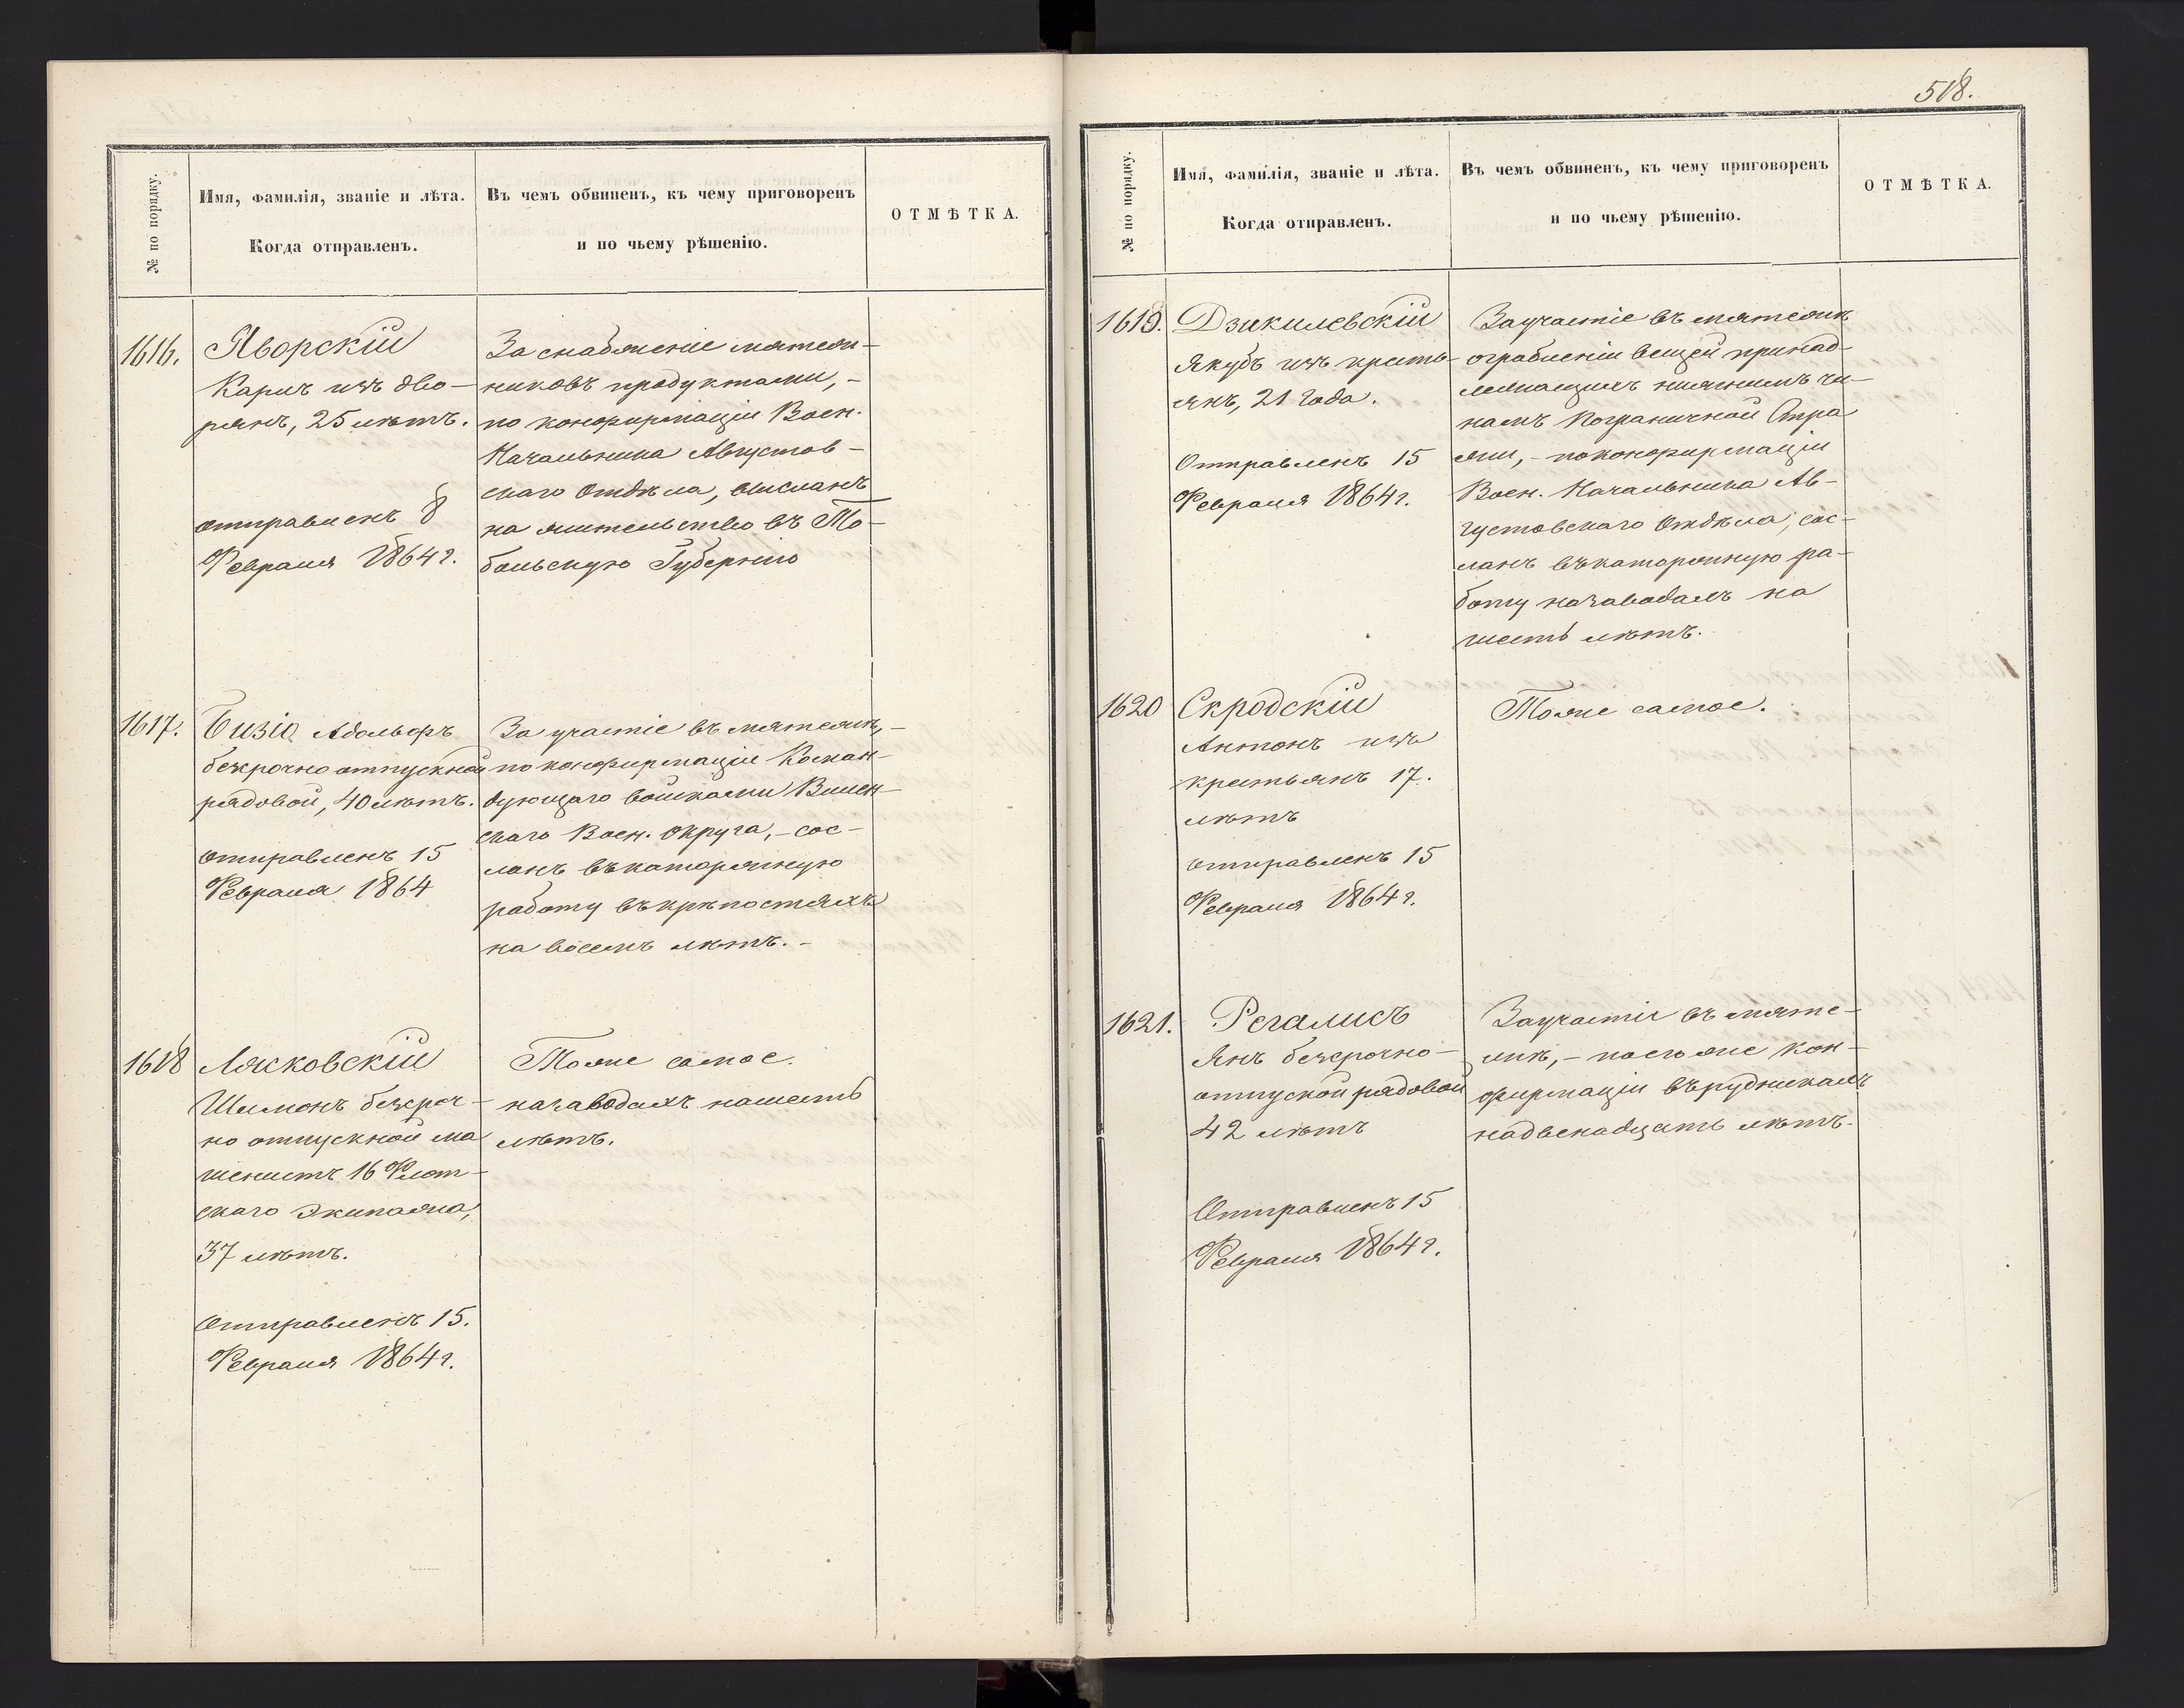 № по порядку.
Имя, фамилія, званіе и лѣта.
Когда отправленъ.
Въ чемъ обвиненъ, къ чему приговоренъ
и по чьему рѣшенію.
ОТМѢТКА.
1616.
Яворскій
Карлъ изъ дво-
рянъ, 25 лѣтъ.
отправленъ 8
Февраля 1864 г.
За снабженіе мятеж-
никовъ продуктами, -
по конфирмаціи Воен.
Начальника Августов-
скаго Отдѣла, высланъ
на жительство въ То-
больскую Губернію
1617.
Бизіо Адольфъ
безсрочно отпускной
рядовой, 40 лѣтъ.
отправленъ 15
Февраля 1864
За участіе въ мятежѣ, -
по конфирмаціи Коман-
дующаго войсками Вилен-
скаго Воен. Округа, - сос-
ланъ въ каторжную
работу въ крѣпостяхъ
на восемь лѣтъ. -
1618
Лясковскій
Шимонъ безсроч-
но отпускной ма
шинистъ 16 Флот-
скаго Экипажа,
37 лѣтъ.
отправленъ 15.
Февраля 1864 г.
Тоже самое.
на заводахъ на шесть
лѣтъ.
518.
№ по порядку.
Имя, фамилія, званіе и лѣта.
Когда отправленъ.
Въ чемъ обвиненъ, къ чему приговоренъ
и по чьему рѣшенію.
ОТМѢТКА.
1619.
Дзикилевскій
Якубъ изъ кресть-
янъ, 21 года.
Отправленъ 15
Февраля 1864 г.
За участіе въ мятежѣ
ограбленіи вещей принад-
лежащихъ нижнимъ чи-
намъ Пограничной Стра
жи, - по конфирмаціи
Воен. Начальника Ав-
густовскаго Отдѣла, сос-
ланъ въ каторжную ра-
боту на заводахъ на
шесть лѣтъ.
1620
Скродскій
Антонъ изъ
крестьянъ 17.
лѣтъ
отправленъ 15
Февраля 1864 г.
Тоже самое.
1621.
Регалисъ
Янъ безсрочно-
отпускной рядовой
42 лѣтъ
Отправленъ 15
Февраля 1864 г.
За участіе въ мяте-
жѣ, - по его же кон-
фирмаціи въ рудникахъ
на двенадцать лѣтъ.